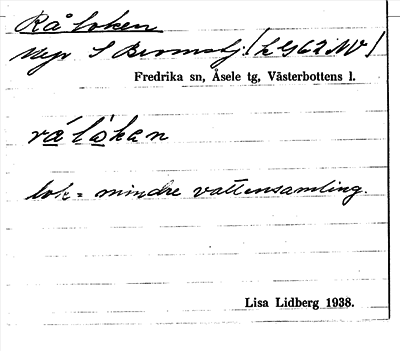 Råloken
S
Fredrika sn, Åsele tg, Västerbottens l.
rá lókan
lok = mindre vattensamling.
Lisa Lidberg 1938.